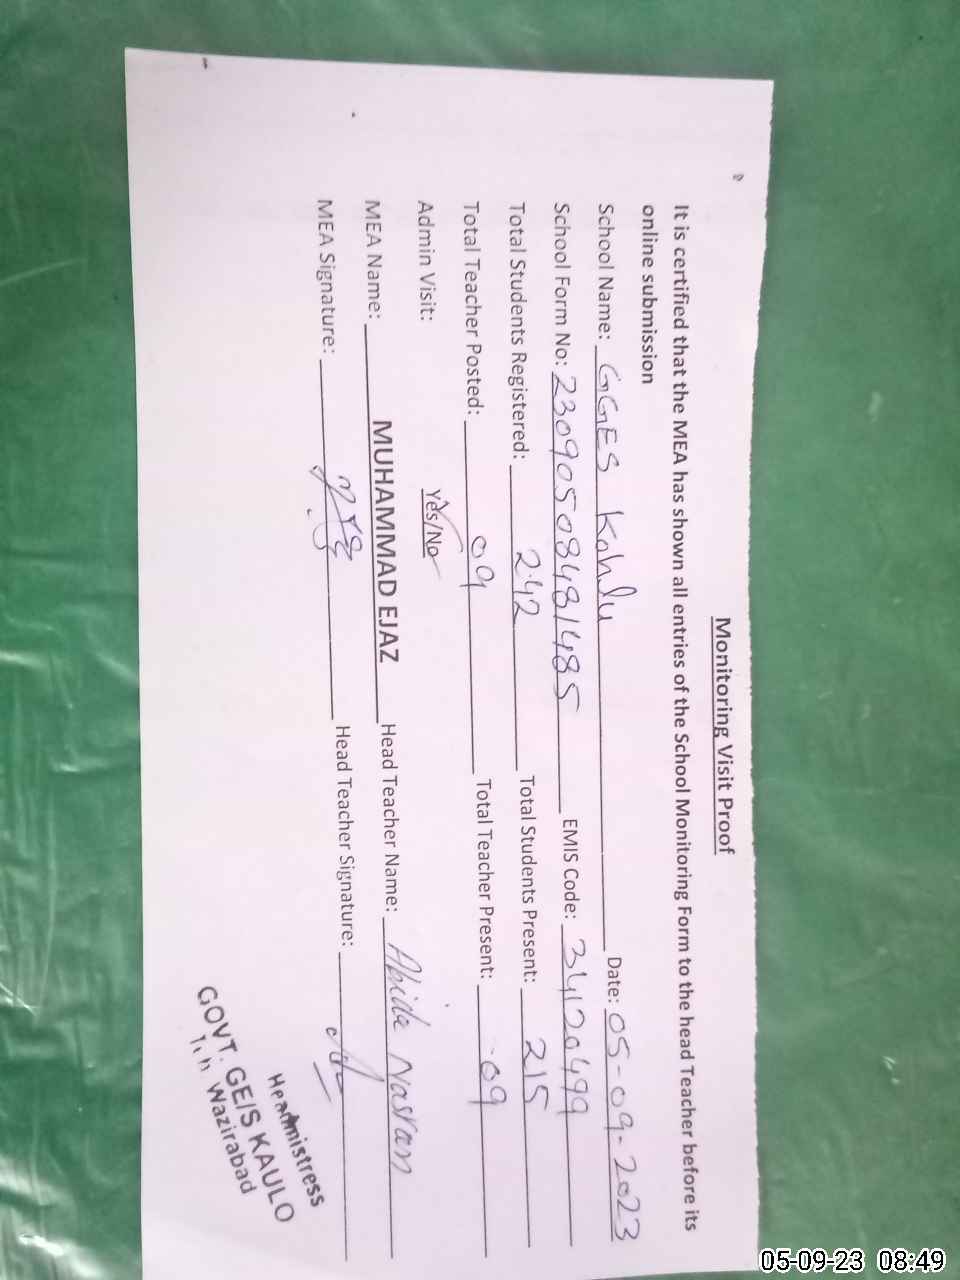 Monitoring Visit Proof
It is certified that the MEA has shown all entries of the School Monitoring Form to the head Teacher before its
online submission
School Name: GGES Kahlu Date: 05-09-2023
School Form No: 23090508481485 EMIS Code: 34120499
Total Students Registered: 242 Total Students Present: 215
Total Teacher Posted: 09 Total Teacher Present: 09
Admin Visit: Yes/No
MEA Name: MUHAMMAD EJAZ Head Teacher Name: Abida Nasran
MEA Signature: Head Teacher Signature:
Headmistress
GOVT. GE/S KAULO
Teh Wazirabad
05-09-23 08:49